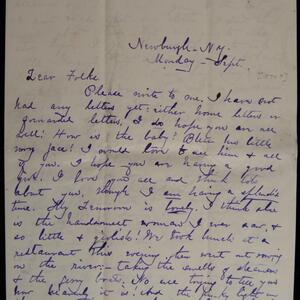 Newburgh - N.Y.
Monday - Sept.
Dear Folks
Please write to me. I have not
had any letters yet: either home letters or
forwarded letters. I do hope you are all
well! How is the baby? Bless his little
rosy face! I would love to see him & all
of you. I hope you are having a good
time. I love you all and think lots
about you, though I am having a splendid
time. is lovely. I think she
is the handsomest woman I ever saw, &
so little & girlish! We took lunch at a
restaurant this evening then went out rowing
on the river - taking the swells of steamers
& the ferry boats. No use trying to tell you
how heavenly it is! And the